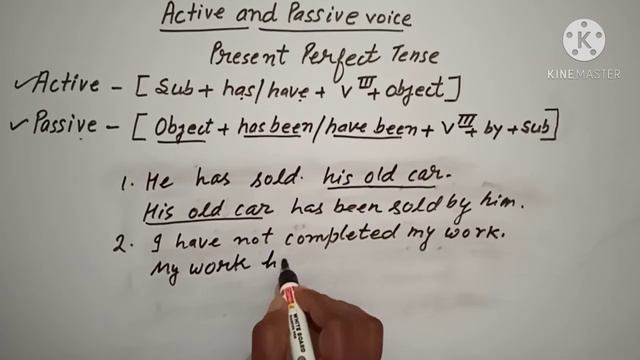 Active and Passive voice
Present Perfect Tense
KINEMASTER
✓Active - [Sub + has/have + V III + object]
✓Passive - [Object + has been/have been + V III + by + Sub]
1. He has sold. his old car.
His old car has been sold by him.
2. I have not completed my work.
My work h
WHITE BOARD